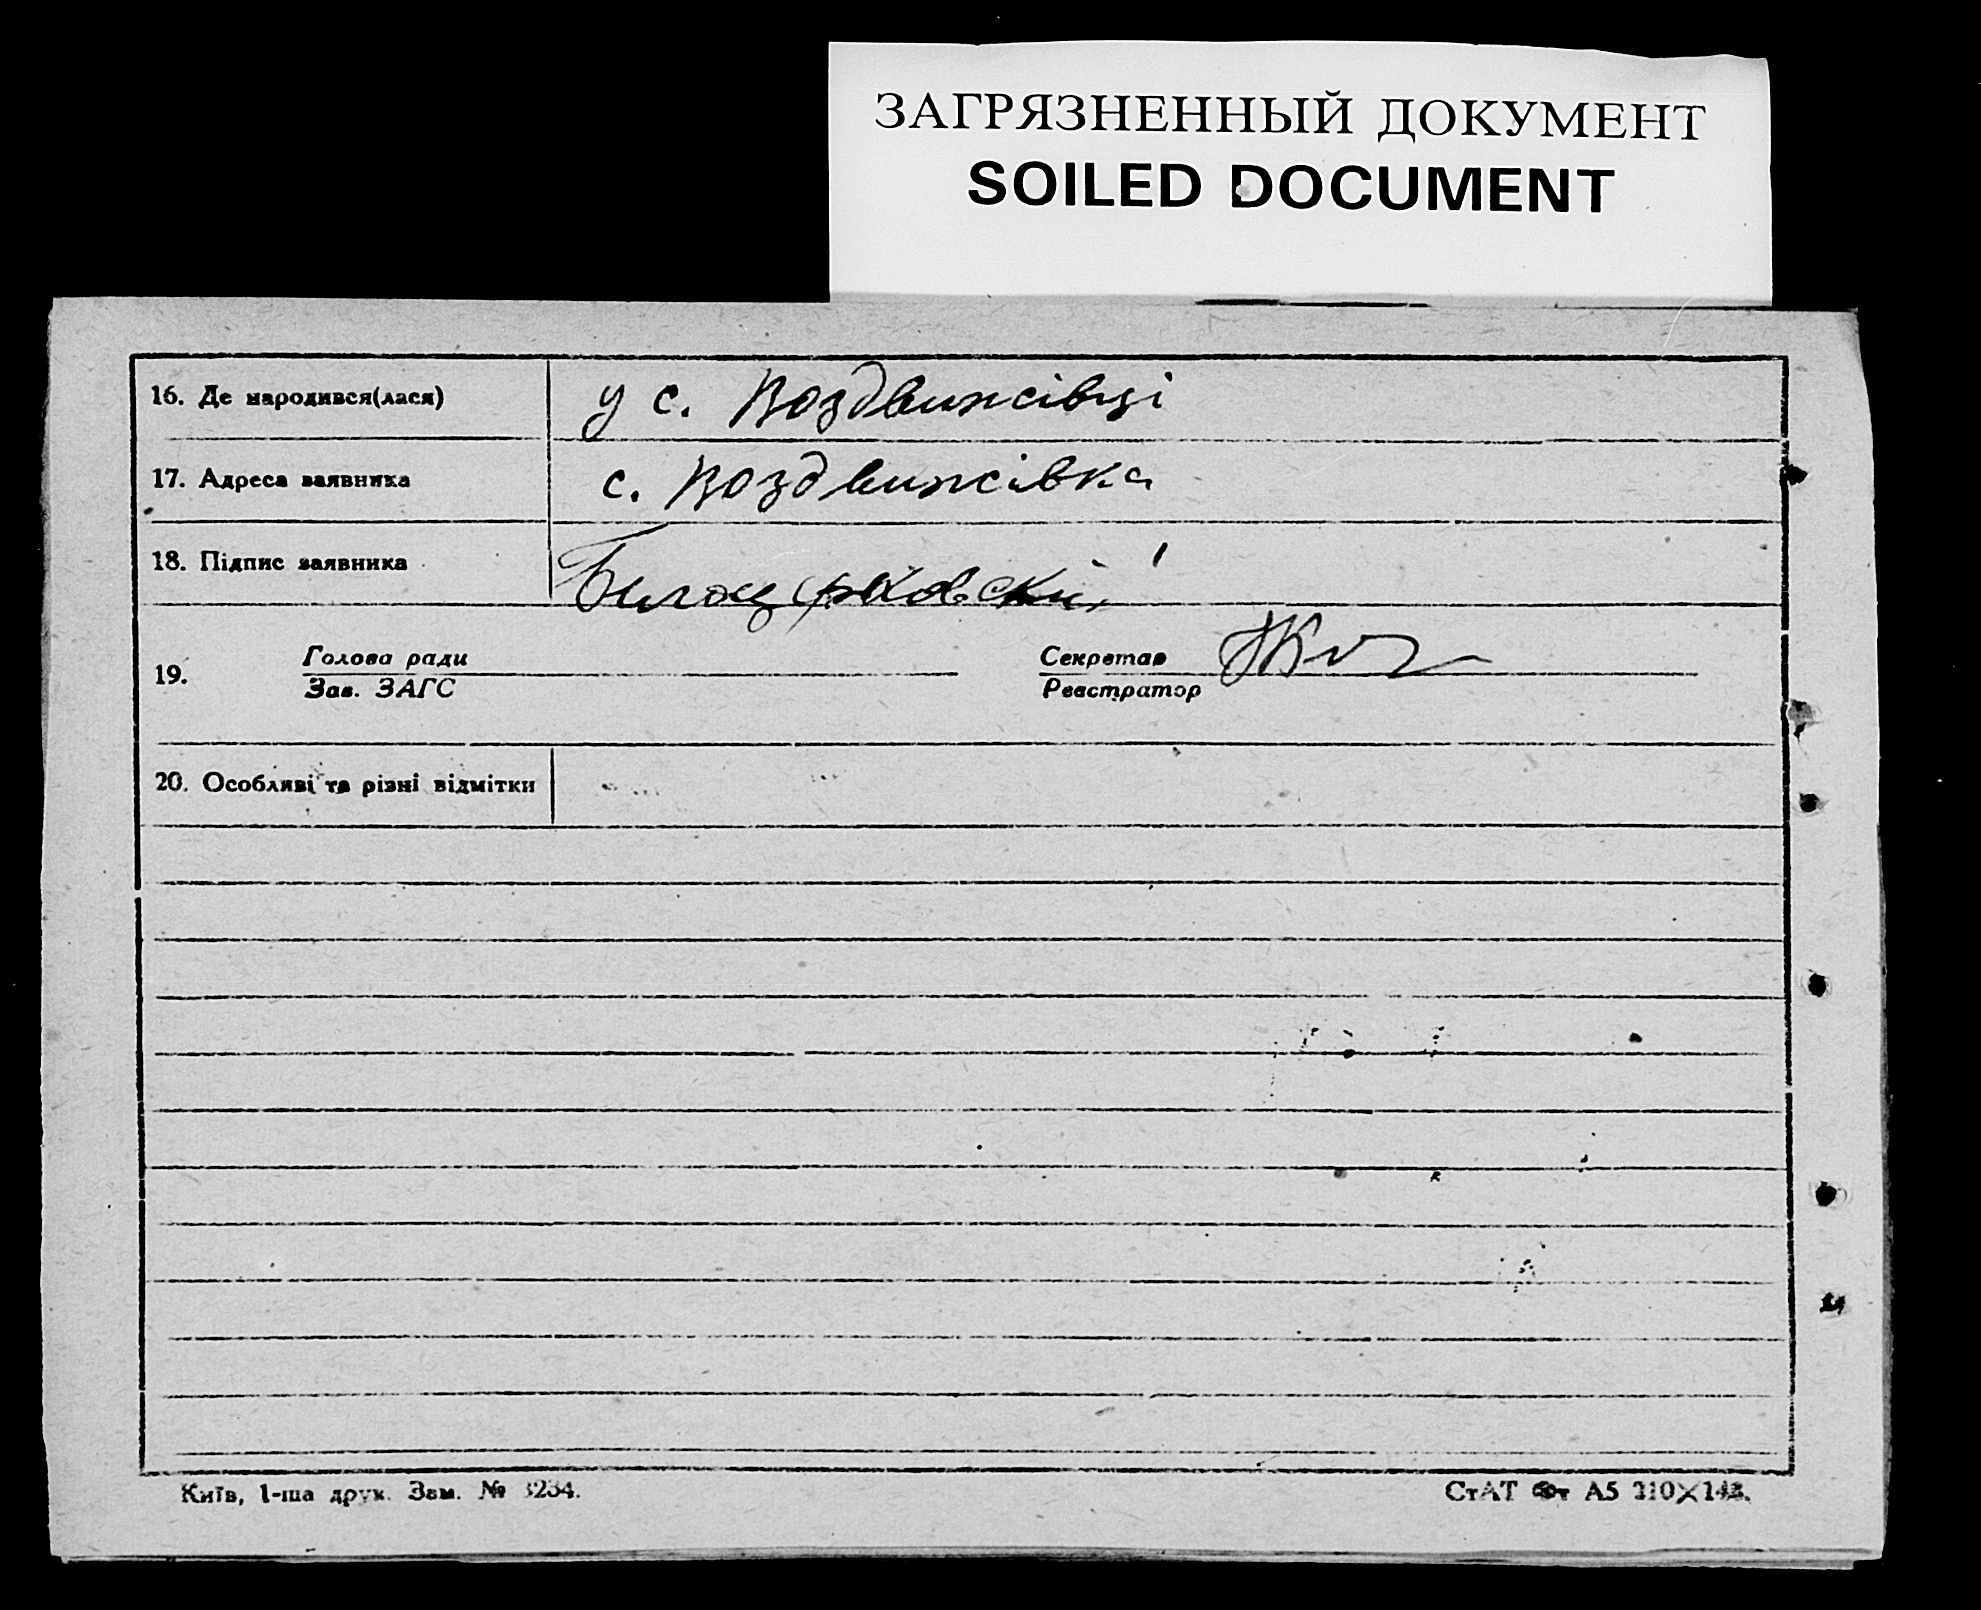 ЗАГРЯЗНЕННЫЙ ДОКУМЕНТ
SOILED DOCUMENT
16. Де народився(лася) у с. Воздвижівці
17. Адреса заявника с. Воздвижівка
18. Підпис заявника
19. Голова ради Секретар
Зав. ЗАГС Реєстратор
20. Особливі та різні відмітки
Київ, 1-ша друк. Зам. №
СтАТ А5 210×148.